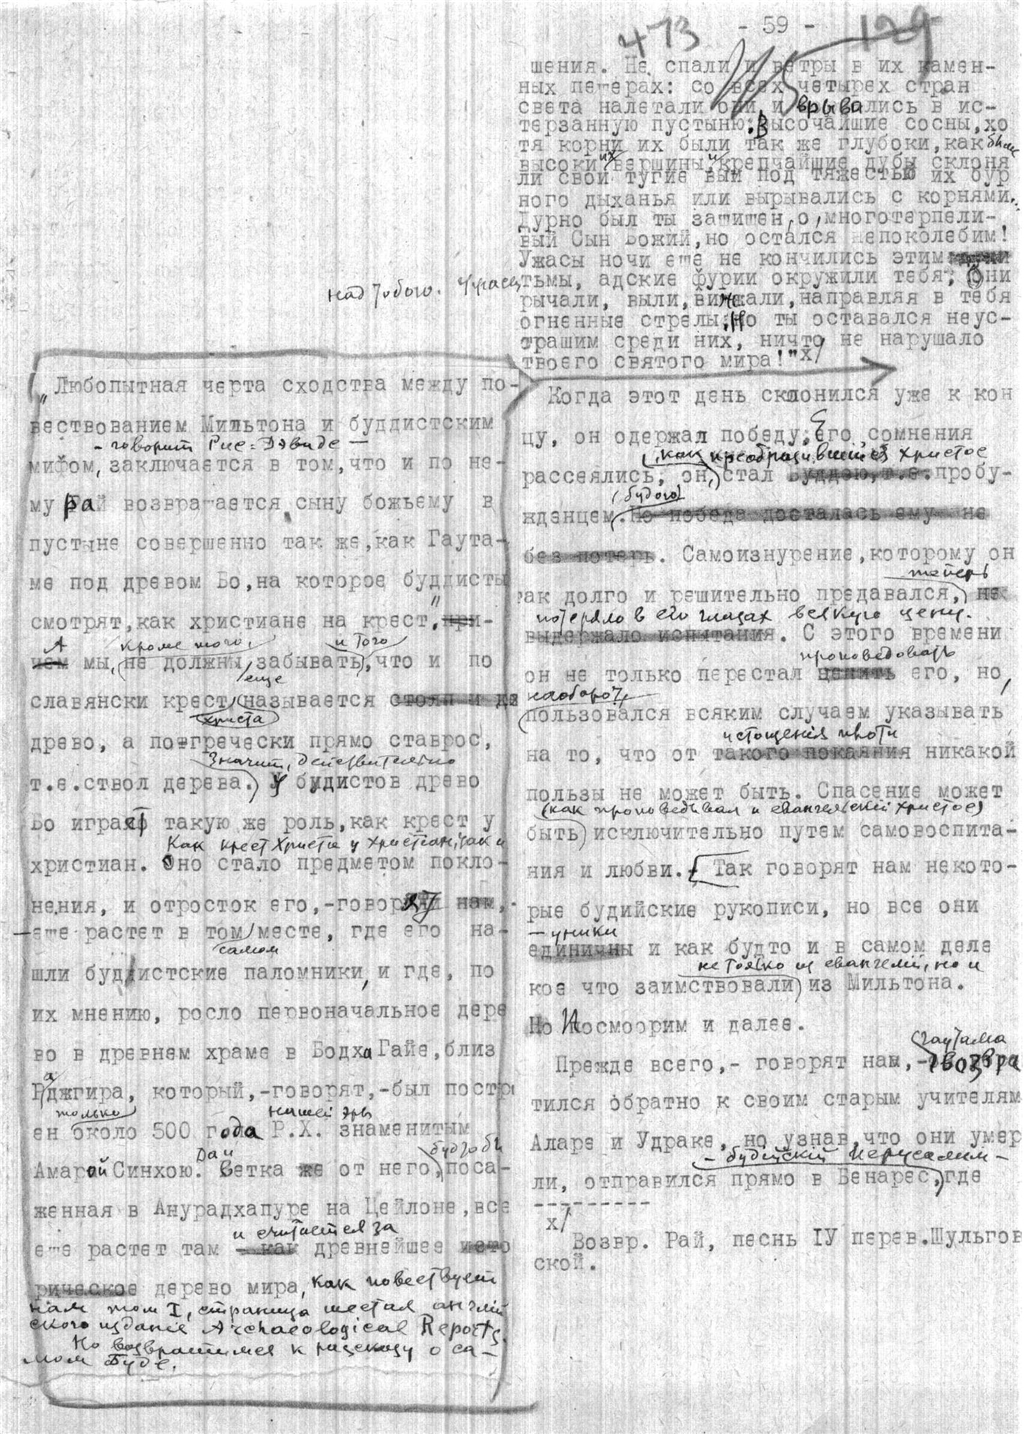 473
- 59 -
129
шения. Не спали и ветры в их камен-
ных пещерах: со всех четырех стран
света налетали они и врывались в ис-
терзанную пустыню. Высочайшие сосны, хо
тя корни их были так же глубоки, как были
высоки их вершины, и крепчайшие дубы склоня
ли свои тугие выи под тяжестью их бур
ного дыханья или вырывались с корнями.
Дурно был ты защищен, о, многотерпели-
вый Сын Божий, но остался непоколебим!
Ужасы ночи еще не кончились этим
над тобою.
тьмы, адские фурии окружили тебя; Они
рычали, выли, визжали, направляя в тебя
огненные стрелы, Но ты оставался неус-
трашим среди них, ничто не нарушало
твоего святого мира!" х/
„Любопытная черта сходства между по-
вествованием Мильтона и буддистским
- говорит Рис-Дэвидс -
мифом, заключается в том, что и по не-
му Рай возвращается сыну божьему в
пустыне совершенно так же, как Гаута-
ме под древом Бо, на которое буддисты
смотрят, как христиане на крест."
А кроме того, и того
мы, не должны забывать, что и по
еще
славянски крест называется
Христа
древо, а по-гречески прямо ставрос,
Значит, действительно
т.е. ствол дерева. У будистов древо
Бо играет такую же роль, как крест у
Как крест Христа у христиан, так и
христиан. Оно стало предметом покло-
нения, и отросток его, - говорят нам,
- еще растет в том месте, где его на-
самом
шли будистские паломники, и где, по
их мнению, росло первоначальное дере
во в древнем храме в Бодха Гайе, близ
Раджгира, который, - говорят, - был постро
только нашей эры
ен около 500 года Р.Х. знаменитым
Амарой Синхою. Ветка же от него, поса-
женная в Анурадхапуре на Цейлоне, все
и считается за
еще растет там древнейшее
дерево мира, как повествует
нам том I, страница шестая англий
ского издания Archaeological Reports.
Но возвратимся к рассказу о са-
мом Буде.
Когда этот день склонился уже к кон
цу, он одержал победу; Его сомнения
как преобразившийся Христос
рассеялись, он, стал Буддою, т.е. пробу-
(будого)
жденцем. Но победа досталась ему не
без потерь. Самоизнурение, которому он
теперь
так долго и решительно предавался, не
потеряло в его глазах всякую цену.
выдержало испытания. С этого времени
проповедовать
он не только перестал ценить его, но,
наоборот,
пользовался всяким случаем указывать
истощения плоти
на то, что от такого покаяния никакой
пользы не может быть. Спасение может
(как проповедывал и евангельский Христос)
быть исключительно путем самовоспита-
ния и любви. - Так говорят нам некото-
рые будийские рукописи, но все они
- уники
единичны и как будто и в самом деле
не только из евангелий, но и
кое что заимствовали из Мильтона.
Но посмотрим и далее.
Гаутама
Прежде всего, - говорят нам, - возвра
тился обратно к своим старым учителям
Аларе и Удраке, но узнав, что они умер
- будийский Иерусалим -
ли, отправился прямо в Бенарес, где
х/
Возвр. Рай, песнь IV перев. Шульгов
ской.